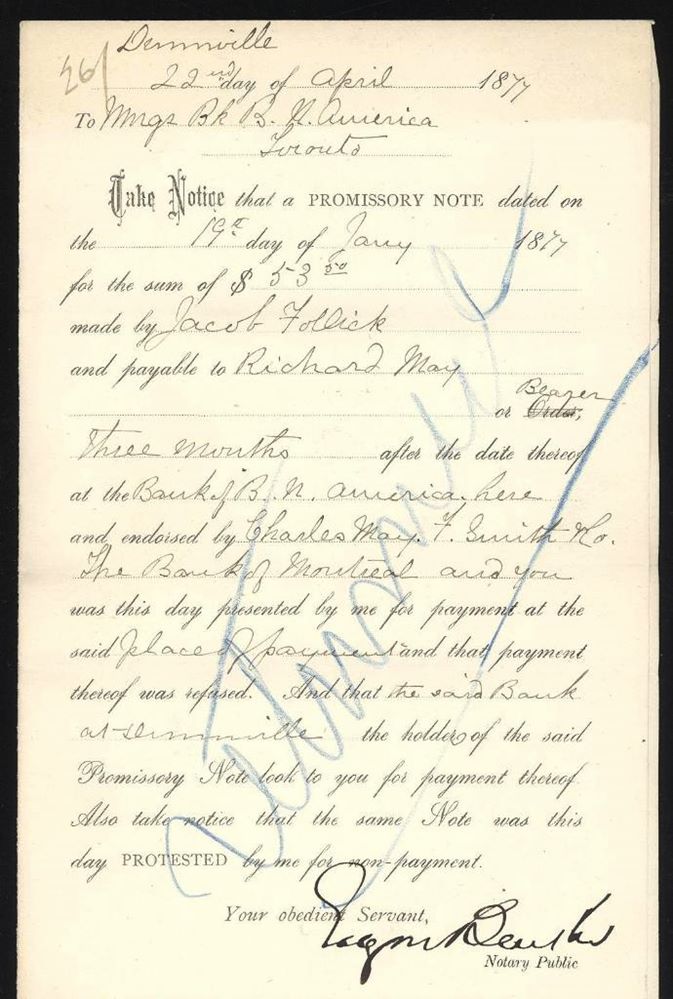 Dunnville
26/
22nd day of April 1877
To Mngr Bk B. N. America
Toronto
Take Notice that a PROMISSORY NOTE dated on
the 19th day of Jany 1877
for the sum of $ 53 50
made by Jacob Follick
and payable to Richard May
Bearer
or Order,
three months after the date thereof
at the Bank of B. N. America here
and endorsed by Charles May. F. Smith & Co.
The Bank of Montreal and you
was this day presented by me for payment at the
said place of payment and that payment
thereof was refused. And that the said Bank
at Dunnville the holder of the said
Promissory Note look to you for payment thereof.
Also take notice that the same Note was this
day PROTESTED by me for non-payment.
Your obedient Servant,
Notary Public